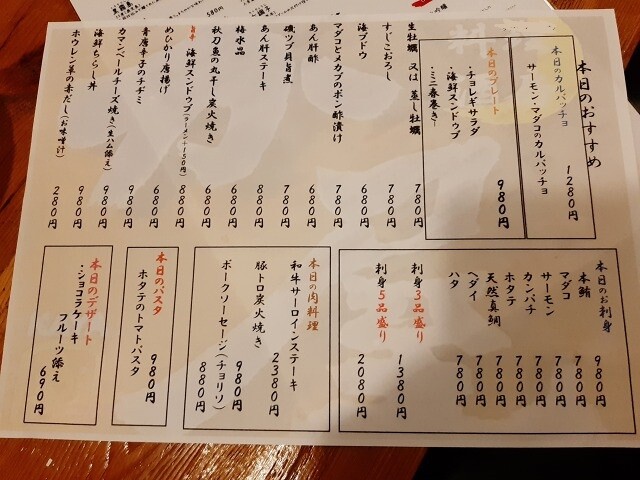 本日のおすすめ
本日のカルパッチョ
サーモン・マダコのカルパッチョ 1280円
本日のプレート
・チョレギサラダ
・海鮮スンドゥブ
・ミニ春巻き 980円
生牡蠣 又は 蒸し牡蠣 780円
すじこおろし 780円
海ブドウ 680円
マダコとメカブのポン酢漬け 780円
あん肝酢 680円
磯ツブ貝旨煮 780円
あん肝ステーキ 880円
梅水晶 680円
秋刀魚の丸干し炭火焼き 680円
海鮮スンドゥブ(ラーメン+150円) 880円
めひかり唐揚げ 680円
青唐辛子のチヂミ 980円
カマンベールチーズ焼き(生ハム添え) 980円
海鮮ちらし丼 980円
ホウレン草の赤だし(お味噌汁) 280円
本日のお刺身
本鮪 980円
マダコ 780円
サーモン 780円
カンパチ 780円
ホタテ 780円
天然真鯛 780円
ヘダイ 780円
ハタ 780円
刺身3品盛り 1380円
刺身5品盛り 2080円
本日の肉料理
和牛サーロインステーキ 2380円
豚トロ炭火焼き 980円
ポークソーセージ(チョリソ) 880円
本日のパスタ
ホタテのトマトパスタ 980円
本日のデザート
・ショコラケーキ
フルーツ添え 690円